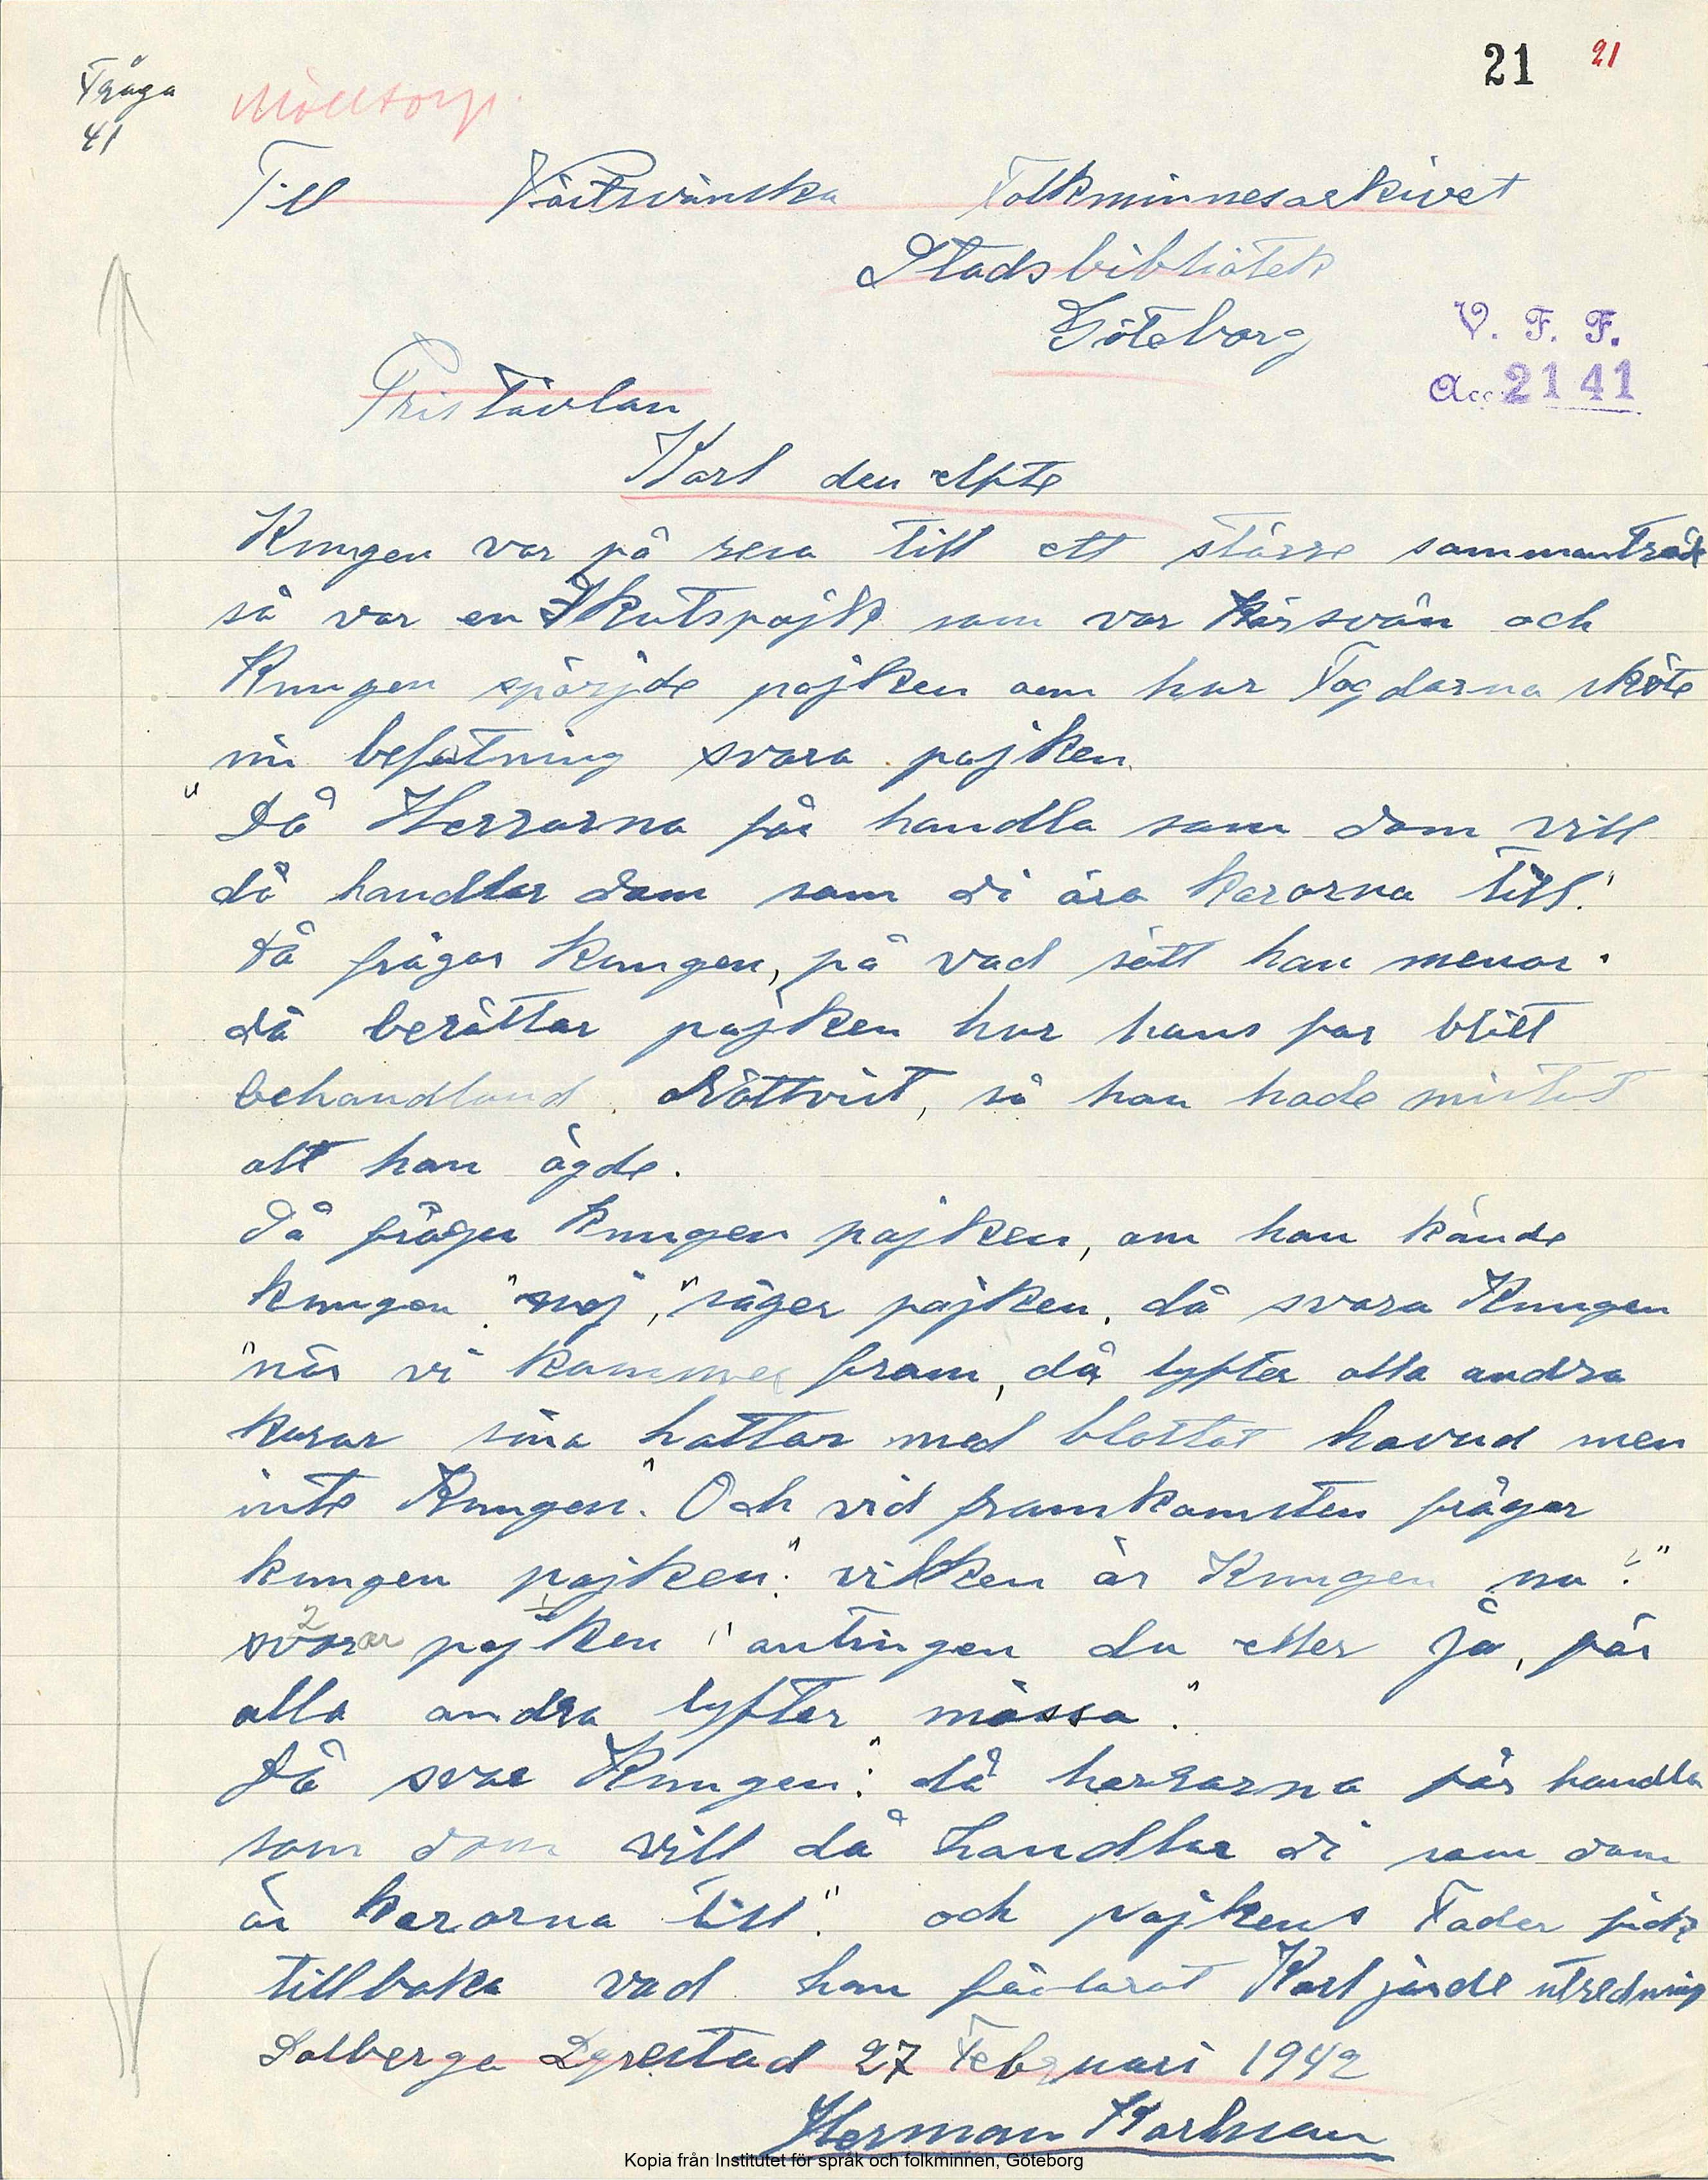 21 21
Fråga
41
Mölltorp.
Till Västsvänska Folkminnesarkivet
Stadsbibliotek
Göteborg
V. F. F.
Acc. 2141
Pris Tävlan
Karl den elfte
Kungen var på resa till ett större sammanträde
så var en Skutspojk som var körsvän och
Kungen spörjde pojken om hur Fogdarna sköte
sin befatning svara pojken
"Då Herrarna får handla som dom vill
då handlar dom som di ära kararna till."
då frågar Kungen, på vad sätt han menar.
då berättar pojken hur hans far blitt
behandland, orättvist, så han hade mistat
alt han ägde.
då frågar kungen pojken, om han kände
kungen "nej," säger pojken, då svara Kungen
"när vi kommer fram, då lyfter alla andra
karar sina hattar med blottat huvud men
inte Kungen". Och vid framkomsten frågar
kungen pojken: "vilken är Kungen nu?"
svarar pojken "antingen du eller ja, för
alla andra lyfter mössa."
Då svar Kungen: "då herrarna får handla
som dom vill då handlar di som dom
är kararna till." och pojkens Fader fick
tillbaka vad han förlorat Karl jorde utredning
Dalberga Dyrestad 27 Februari 1942
Herman Karlman
Kopia från Institutet för språk och folkminnen, Göteborg